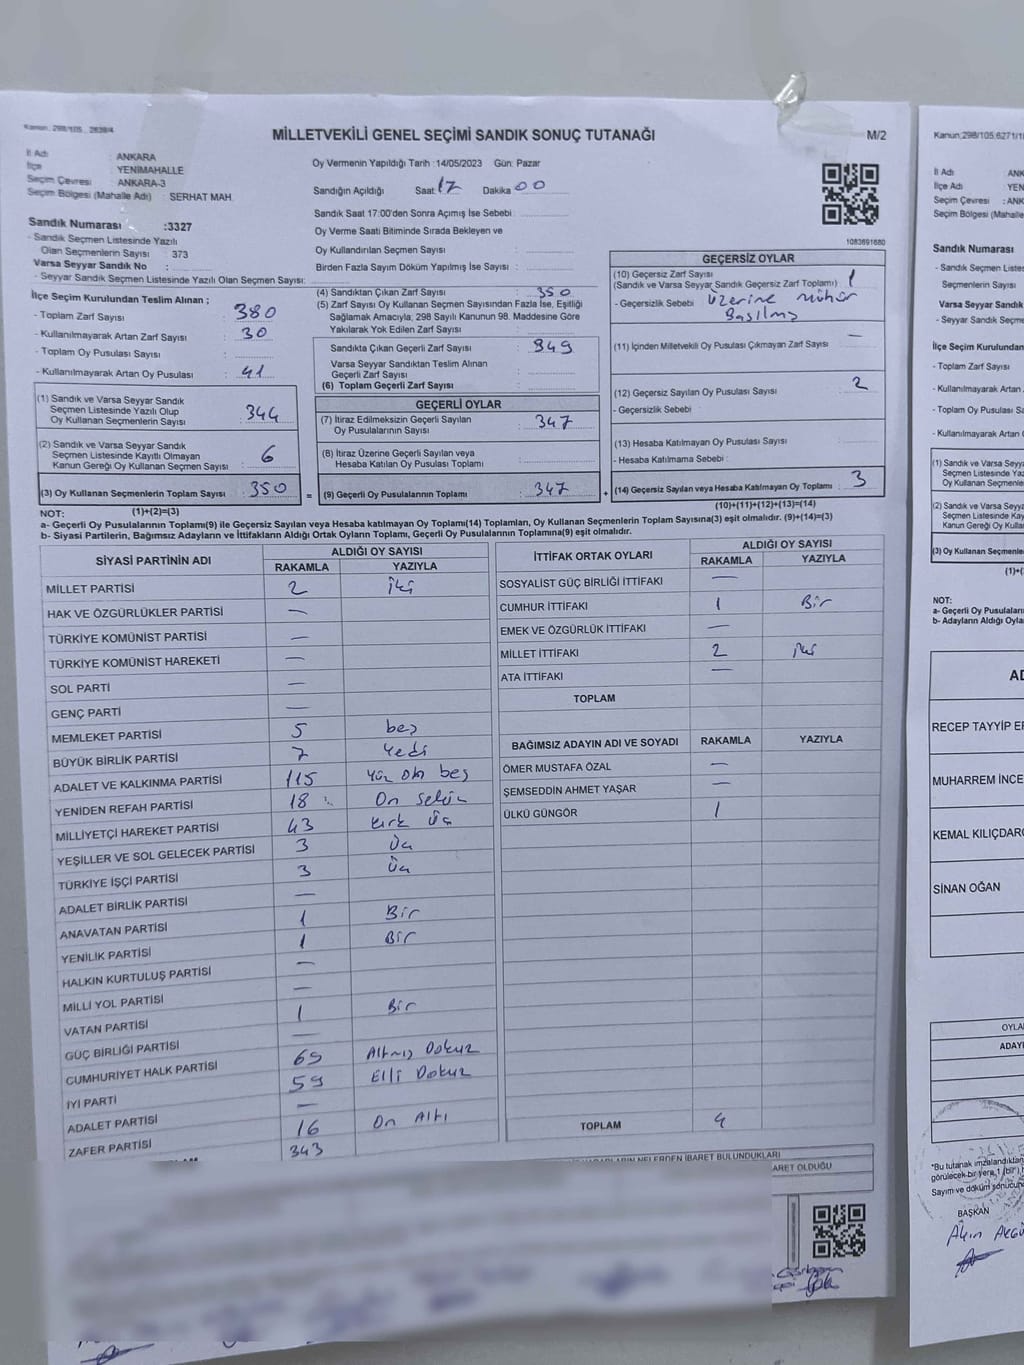 Kanun: 298/105 , 2839/4
MİLLETVEKİLİ GENEL SEÇİMİ SANDIK SONUÇ TUTANAĞI
M/2
İl Adı : ANKARA
İlçe : YENİMAHALLE
Seçim Çevresi : ANKARA-3
Seçim Bölgesi (Mahalle Adı) : SERHAT MAH.
Sandık Numarası :3327
- Sandık Seçmen Listesinde Yazılı
Olan Seçmenlerin Sayısı : 373
Varsa Seyyar Sandık No :
- Seyyar Sandık Seçmen Listesinde Yazılı Olan Seçmen Sayısı:
İlçe Seçim Kurulundan Teslim Alınan ;
- Toplam Zarf Sayısı : 380
- Kullanılmayarak Artan Zarf Sayısı : 30
- Toplam Oy Pusulası Sayısı :
- Kullanılmayarak Artan Oy Pusulası : 41
(1) Sandık ve Varsa Seyyar Sandık
Seçmen Listesinde Yazılı Olup
Oy Kullanan Seçmenlerin Sayısı : 344
(2) Sandık ve Varsa Seyyar Sandık
Seçmen Listesinde Kayıtlı Olmayan
Kanun Gereği Oy Kullanan Seçmen Sayısı : 6
(3) Oy Kullanan Seçmenlerin Toplam Sayısı : 350
(1)+(2)=(3)
Oy Vermenin Yapıldığı Tarih :14/05/2023 Gün: Pazar
Sandığın Açıldığı Saat 17 Dakika 00
Sandık Saat 17:00'den Sonra Açımış İse Sebebi :
Oy Verme Saati Bitiminde Sırada Bekleyen ve
Oy Kullandırılan Seçmen Sayısı :
Birden Fazla Sayım Döküm Yapılmış İse Sayısı :
(4) Sandıktan Çıkan Zarf Sayısı : 350
(5) Zarf Sayısı Oy Kullanan Seçmen Sayısından Fazla İse, Eşitliği
Sağlamak Amacıyla, 298 Sayılı Kanunun 98. Maddesine Göre
Yakılarak Yok Edilen Zarf Sayısı :
Sandıkta Çıkan Geçerli Zarf Sayısı : 349
Varsa Seyyar Sandıktan Teslim Alınan
Geçerli Zarf Sayısı :
(6) Toplam Geçerli Zarf Sayısı :
GEÇERLİ OYLAR
(7) İtiraz Edilmeksizin Geçerli Sayılan
Oy Pusulalarının Sayısı : 347
(8) İtiraz Üzerine Geçerli Sayılan veya
Hesaba Katılan Oy Pusulası Toplamı :
= (9) Geçerli Oy Pusulalarının Toplamı : 347
1083691680
GEÇERSİZ OYLAR
(10) Geçersiz Zarf Sayısı
(Sandık ve Varsa Seyyar Sandık Geçersiz Zarf Toplamı) : 1
- Geçersizlik Sebebi : Üzerine mühür
Basılmış
(11) İçinden Milletvekili Oy Pusulası Çıkmayan Zarf Sayısı : —
(12) Geçersiz Sayılan Oy Pusulası Sayısı : 2
- Geçersizlik Sebebi :
(13) Hesaba Katılmayan Oy Pusulası Sayısı :
- Hesaba Katılmama Sebebi :
+ (14) Geçersiz Sayılan veya Hesaba Katılmayan Oy Toplamı : 3
(10)+(11)+(12)+(13)=(14)
NOT:
a- Geçerli Oy Pusulalarının Toplamı(9) ile Geçersiz Sayılan veya Hesaba katılmayan Oy Toplamı(14) Toplamları, Oy Kullanan Seçmenlerin Toplam Sayısına(3) eşit olmalıdır. (9)+(14)=(3)
b- Siyasi Partilerin, Bağımsız Adayların ve İttifakların Aldığı Ortak Oyların Toplamı, Geçerli Oy Pusulalarının Toplamına(9) eşit olmalıdır.
SİYASİ PARTİNİN ADI ALDIĞI OY SAYISI
RAKAMLA YAZIYLA
MİLLET PARTİSİ 2 iki
HAK VE ÖZGÜRLÜKLER PARTİSİ —
TÜRKİYE KOMÜNİST PARTİSİ —
TÜRKİYE KOMÜNİST HAREKETİ —
SOL PARTİ —
GENÇ PARTİ —
MEMLEKET PARTİSİ 5 beş
BÜYÜK BİRLİK PARTİSİ 7 Yedi
ADALET VE KALKINMA PARTİSİ 115 Yüz on beş
YENİDEN REFAH PARTİSİ 18 On sekiz
MİLLİYETÇİ HAREKET PARTİSİ 43 kırk Üç
YEŞİLLER VE SOL GELECEK PARTİSİ 3 Üç
TÜRKİYE İŞÇİ PARTİSİ 3 Üç
ADALET BİRLİK PARTİSİ —
ANAVATAN PARTİSİ 1 Bir
YENİLİK PARTİSİ 1 Bir
HALKIN KURTULUŞ PARTİSİ —
MİLLİ YOL PARTİSİ —
VATAN PARTİSİ 1 Bir
GÜÇ BİRLİĞİ PARTİSİ —
CUMHURİYET HALK PARTİSİ 69 Altmış Dokuz
İYİ PARTİ 59 Elli Dokuz
ADALET PARTİSİ —
ZAFER PARTİSİ 16 On Altı
343
İTTİFAK ORTAK OYLARI ALDIĞI OY SAYISI
RAKAMLA YAZIYLA
SOSYALİST GÜÇ BİRLİĞİ İTTİFAKI —
CUMHUR İTTİFAKI 1 Bir
EMEK VE ÖZGÜRLÜK İTTİFAKI —
MİLLET İTTİFAKI 2 iki
ATA İTTİFAKI —
TOPLAM
BAĞIMSIZ ADAYIN ADI VE SOYADI RAKAMLA YAZIYLA
ÖMER MUSTAFA ÖZAL —
ŞEMSEDDİN AHMET YAŞAR —
ÜLKÜ GÜNGÖR 1
TOPLAM 4
NELERDEN İBARET BULUNDUKLARI
ARET OLDUĞU
Kanun:298/105,6271/1
İl Adı : ANK
İlçe Adı : YEN
Seçim Çevresi : ANK
Seçim Bölgesi (Mahalle
Sandık Numarası
- Sandık Seçmen Listes
Seçmenlerin Sayısı
Varsa Seyyar Sandık
- Seyyar Sandık Seçme
İlçe Seçim Kurulundan
- Toplam Zarf Sayısı
- Kullanılmayarak Artan
- Toplam Oy Pusulası
- Kullanılmayarak Artan
(1) Sandık ve Varsa Seyya
Seçmen Listesinde Yaz
Oy Kullanan Seçmenle
(2) Sandık ve Varsa Seyya
Seçmen Listesinde Ka
Kanun Gereği Oy Kulla
(3) Oy Kullanan Seçmenle
(1)+(
NOT:
a- Geçerli Oy Pusulaların
b- Adayların Aldığı Oyla
AD
RECEP TAYYİP ER
MUHARREM İNCE
KEMAL KILIÇDARO
SİNAN OĞAN
OYLA
ADAYI
"Bu tutanak imzalandıktan
görülecek bir yere 1 (bir)
Sayım ve döküm sonucun
BAŞKAN